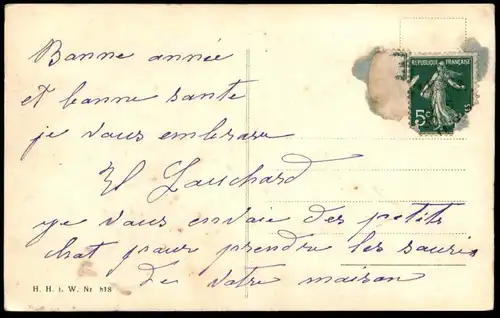 Bonne année
et bonne santé
je vous embrasse
REPUBLIQUE FRANÇAISE
5c
El Louchard
je vous envoie des petits
chat pour prendre les souris
de votre maison
H. H. i. W. Nr. 818